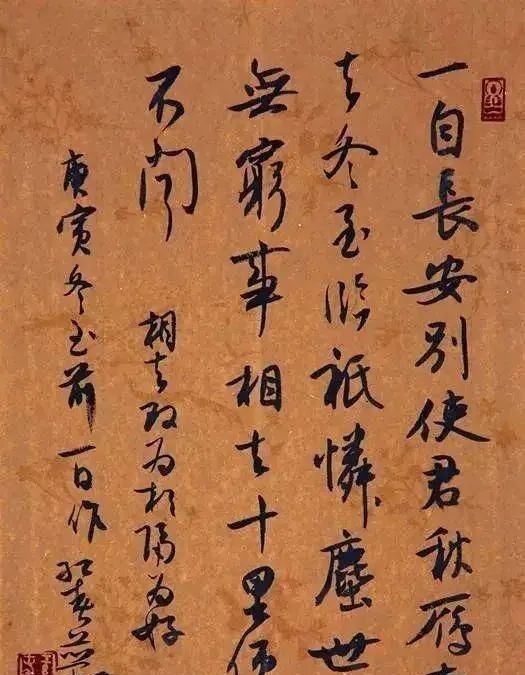 一自長安別使君秋雁
去冬至臨祇憐塵世
無窮事相去十里
不聞
相去改为相隔为好
庚寅冬至前一日作